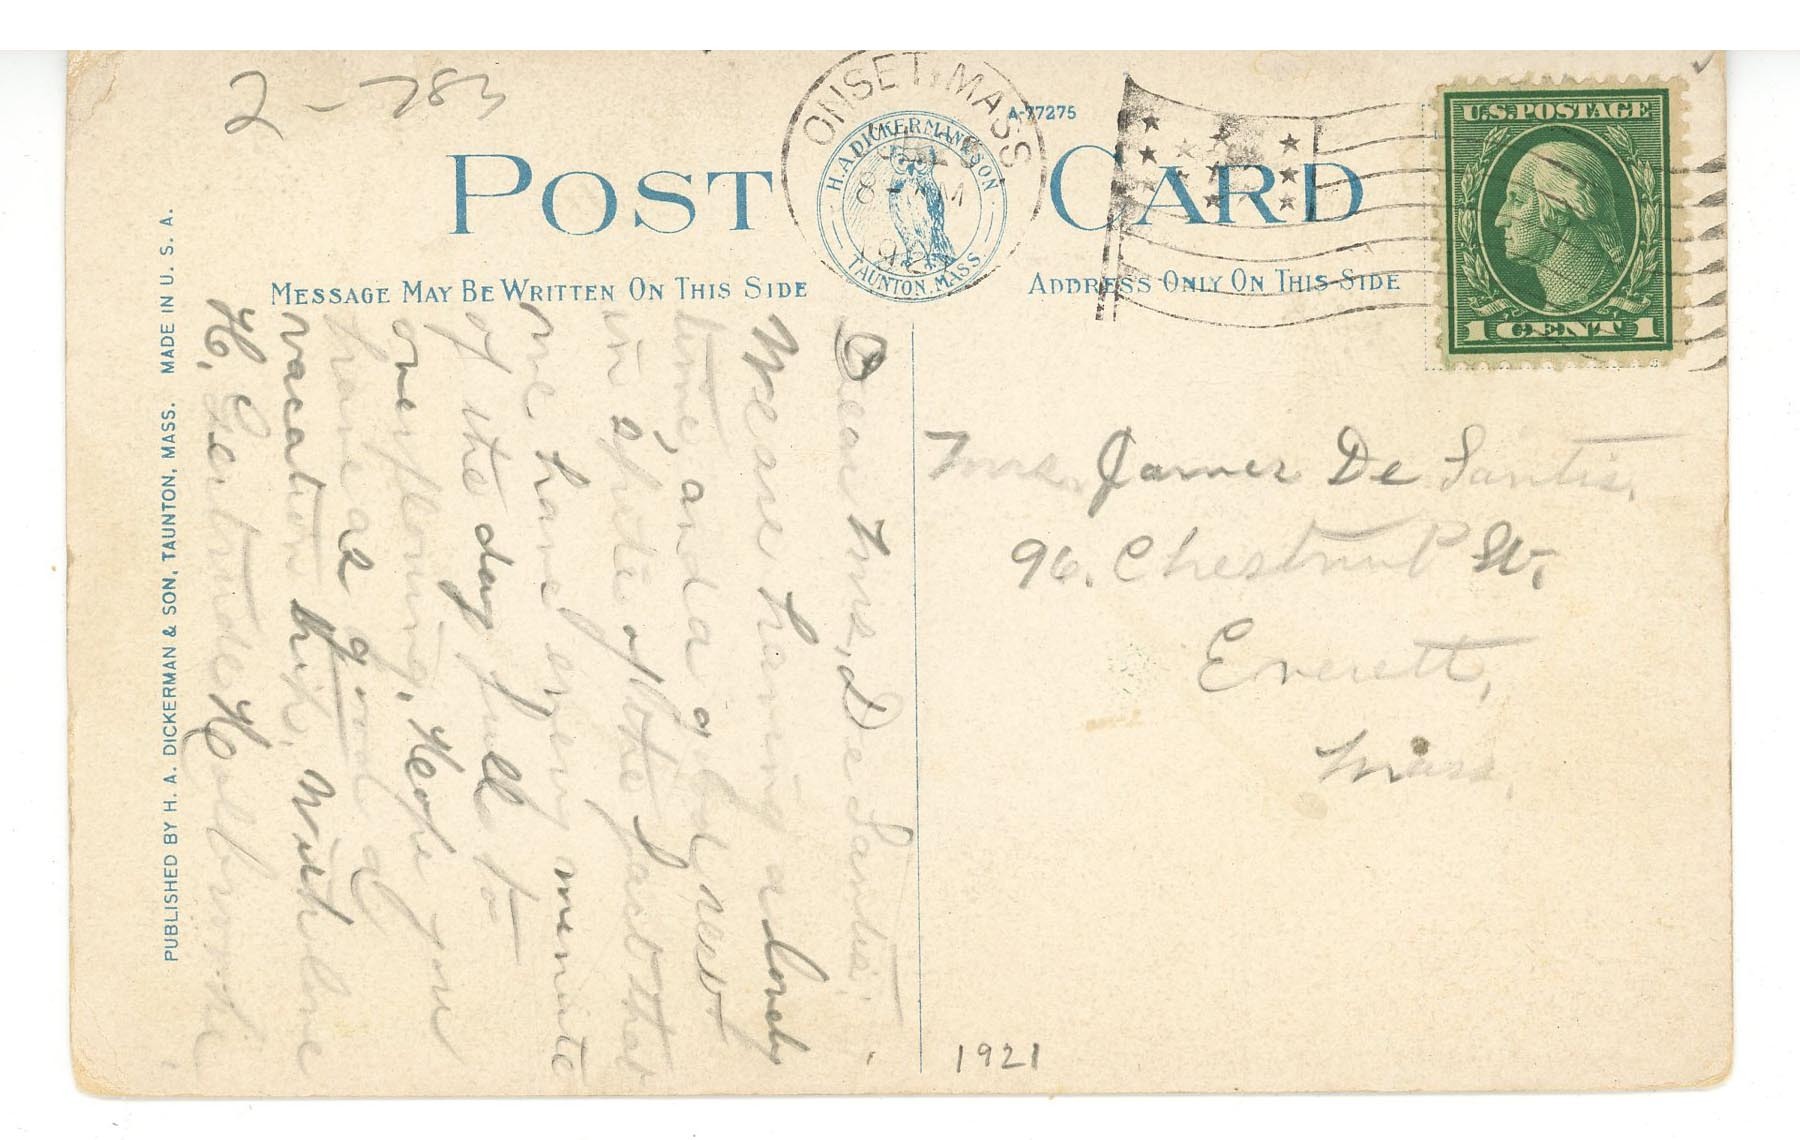 2-783
ONSET, MASS
8-AM
A-77275
POST CARD
H. A. DICKERMAN & SON
TAUNTON, MASS
U.S. POSTAGE
1 CENT 1
MESSAGE MAY BE WRITTEN ON THIS SIDE
ADDRESS ONLY ON THIS SIDE
Dear Mrs. De Santis:
We are having a lovely
time, and a good rest
in spite of the fact that
we have every minute
of the day full to
overflowing. Hope you
have as good a
vacation trip. With love
H. Gertrude Holbrook
Mrs. James De Santis.
96. Chestnut St.
Everett,
Mass.
1921
PUBLISHED BY H. A. DICKERMAN & SON, TAUNTON, MASS. MADE IN U. S. A.